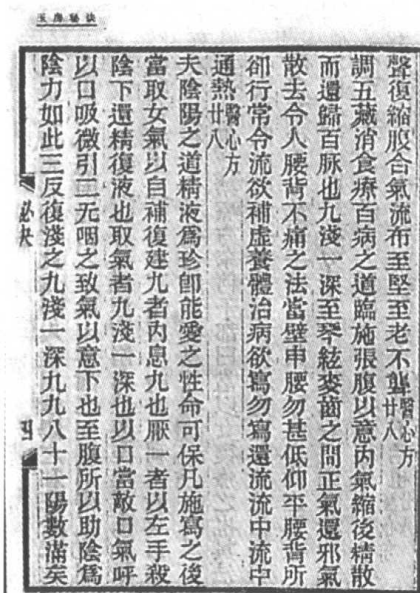 玉房秘诀
聲復縮腹合氣流布至堅至老不聾醫心方廿八
調五藏消食療百病之道臨施張腹以意內氣縮後精散
而還歸百脉也九淺一深至琴絃麥齒之間正氣還邪氣
散去令人腰背不痛之法當壁申腰勿甚低仰平腰背所
卻行常令流欲補虛養體治病欲寫勿寫還流流中流中
通熱醫心方廿八
夫陰陽之道精液爲珍卽能愛之性命可保凡施寫之後
當取女氣以自補復建九者內息九也厭一者以左手殺
陰下還精復液也取氣者九淺一深也以口當敵口氣呼
以口吸微引二无咽之致氣以意下也至腹所以助陰爲
陰力如此三反復淺之九淺一深九九八十一陽數滿矣
必抉
四